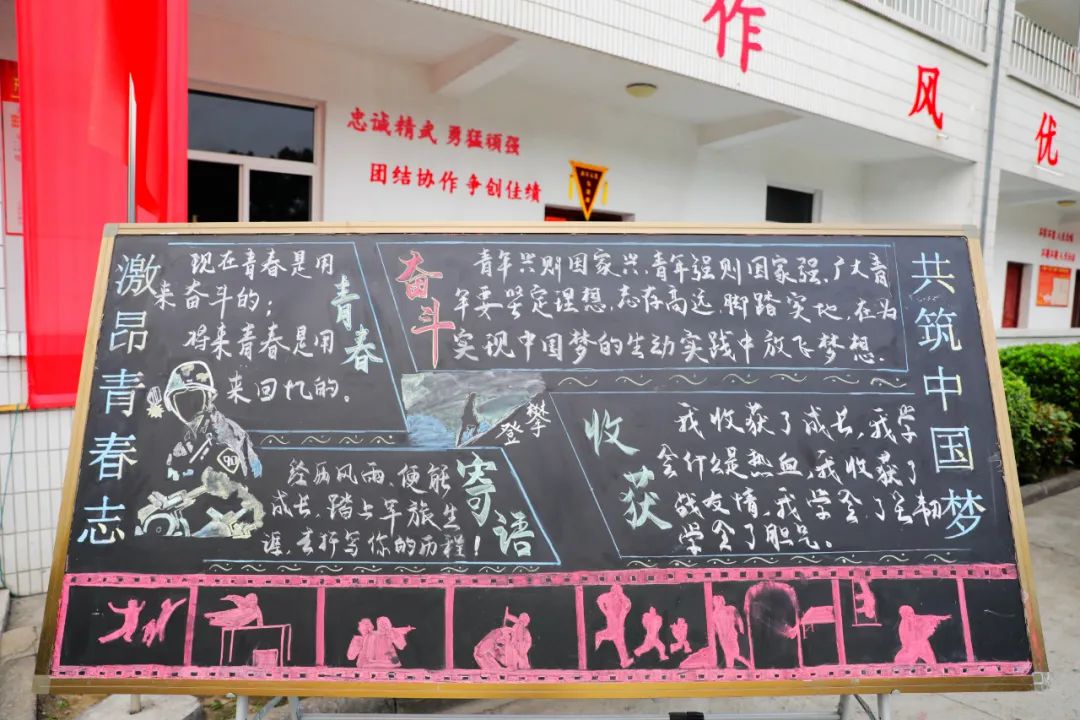 作
风
优
忠诚精武 勇猛顽强
团结协作 争创佳绩
激昂青春志
现在青春是用
来奋斗的；
将来青春是用
来回忆的。
青春
奋斗
青年兴则国家兴，青年强则国家强，广大青
年要坚定理想，志存高远，脚踏实地，在为
实现中国梦的生动实践中放飞梦想。
攀登
经历风雨，便能
成长，踏上军旅生
涯，去抒写你的历程！
寄语
收获
我收获了成长，我学
会什么是热血，我收获了
战友情，我学会了坚韧
学会了胆足。
共筑中国梦